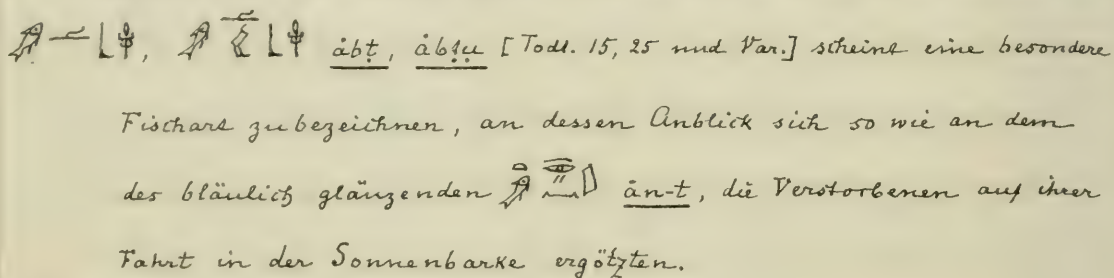 ȧbṭ, ȧbṭu [Todt. 15, 25 und Var.] scheint eine besondere
Fischart zu bezeichnen, an dessen Anblick sich so wie an dem
des bläulich glänzenden ȧn-t, die Verstorbenen auf ihrer
Fahrt in der Sonnenbarke ergötzten.